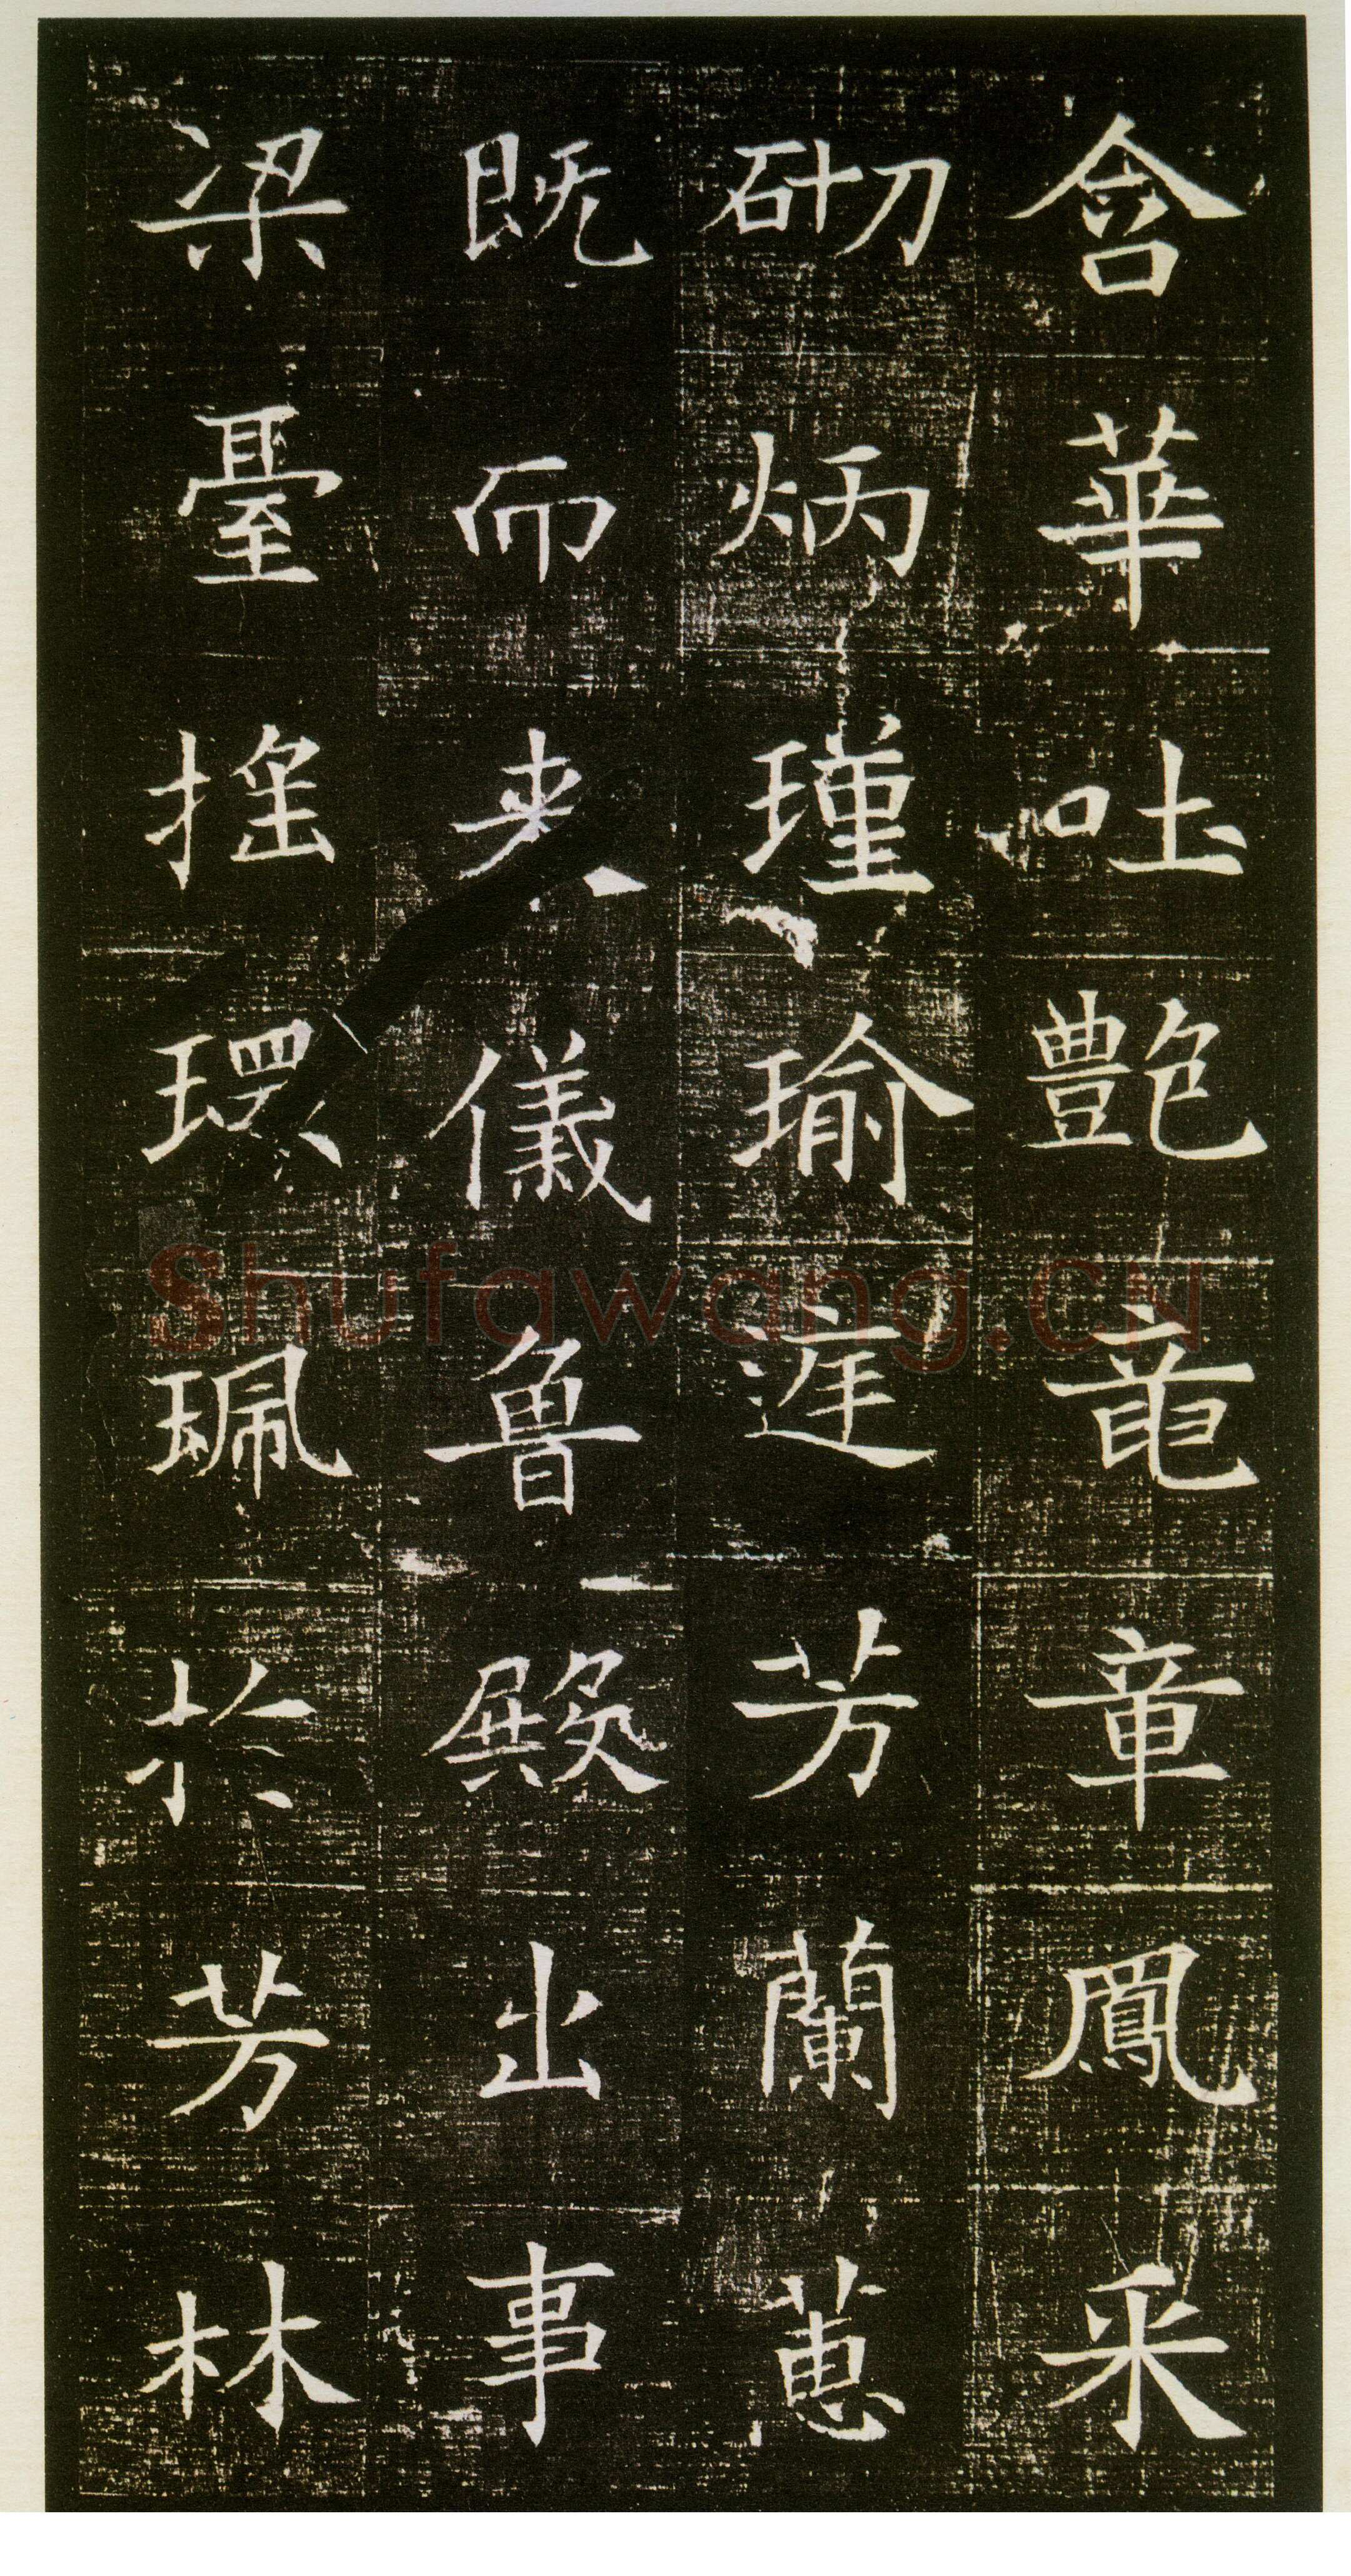 含華吐艷龍章鳳采
砌炳瑾瑜庭芳蘭蕙
既而來儀魯殿出事
梁臺搖環珮於芳林
Shufawang.CN